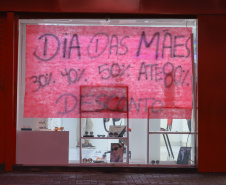 DIA DAS MÃES
30% 40% 50% ATÉ 80%
DESCONTO